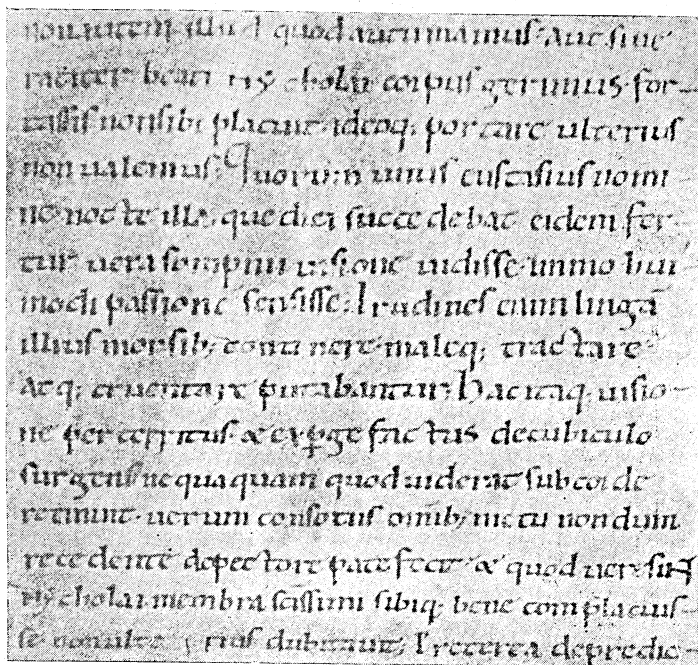 non autem illud quod autumamus. aut si ue
raciter beati nycholai corpus gerimus. for-
tassis non sibi placuit. ideoq; portare ulterius
non ualemus; Quorum unus eustasius nomi
ne. nocte illa. que diei succedebat eidem fer-
tur uera sompnii uisione uidisse. immo hui
modi passione sensisse; Irudines enim linguā
illius morsib; continere. maleq; tractare
atq; cruentare putabantur; Hac itaq; uisio-
ne perterritus. & exp̱gefactus de cubiculo
surgens. nequaquam quod uiderat sub corde
retinuit. uerum consotiis omnib; metu nondum
recedente de pectore patefecit. & quod uere sint
nycholai membra scissim sibiq; bene complacuis-
se non ulterius dubitauit; Preterea depredic